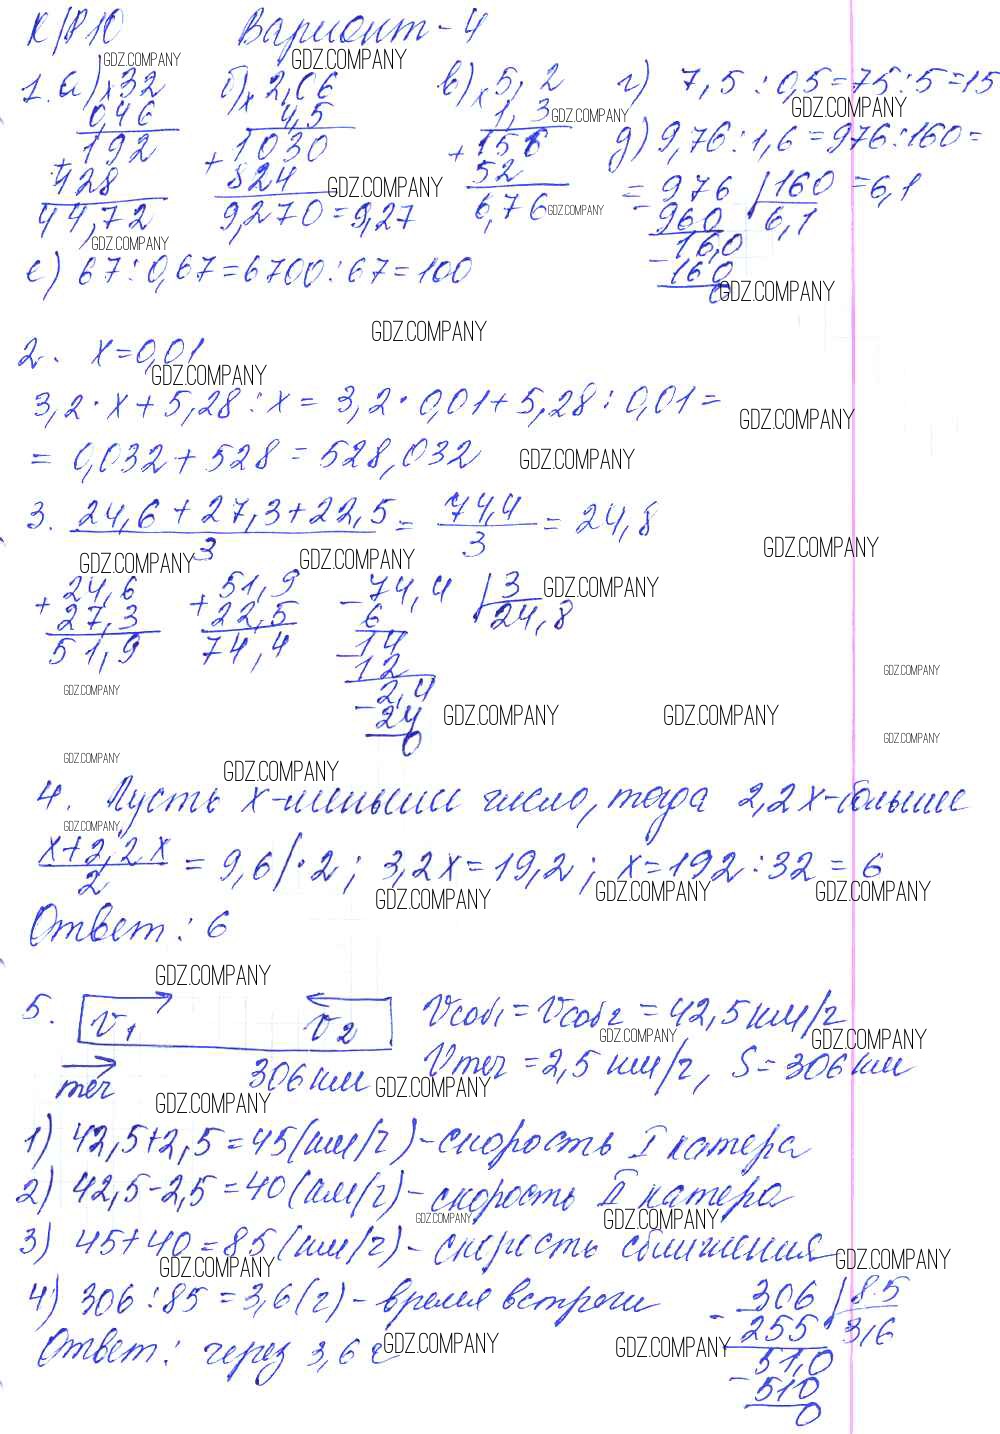 К/Р 10 Вариант - 4
1. а) × 32 б) × 2,06 в) × 5,2 г) 7,5 : 0,5 = 75 : 5 = 15
0,46 4,5 1,3 д) 9,76 : 1,6 = 976 : 160 =
+ 192 + 1030 + 156 = 976 | 160 = 6,1
428 824 52 - 960 6,1
44,72 9,270 = 9,27 6,76 - 16,0
160
0
е) 67 : 0,67 = 6700 : 67 = 100
2. x = 0,01
3,2 · x + 5,28 : x = 3,2 · 0,01 + 5,28 : 0,01 =
= 0,032 + 528 = 528,032
3. 24,6 + 27,3 + 22,5 / 3 = 74,4 / 3 = 24,8
+ 24,6 + 51,9 - 74,4 | 3
27,3 22,5 6 24,8
51,9 74,4 - 14
12
- 2,4
24
0
4. Пусть x - меньшее число, тогда 2,2x - большее
x + 2,2x / 2 = 9,6 | · 2 ; 3,2x = 19,2 ; x = 192 : 32 = 6
Ответ : 6
5. v1 v2 Vсоб1 = Vсоб2 = 42,5 км/ч
теч 306 км Vтеч = 2,5 км/ч, S = 306 км
1) 42,5 + 2,5 = 45 (км/ч) - скорость I катера
2) 42,5 - 2,5 = 40 (км/ч) - скорость II катера
3) 45 + 40 = 85 (км/ч) - скорость сближения
4) 306 : 85 = 3,6 (ч) - время встречи - 306 | 85
Ответ : через 3,6 ч 255 3,6
- 51,0
510
0
GDZ.COMPANY